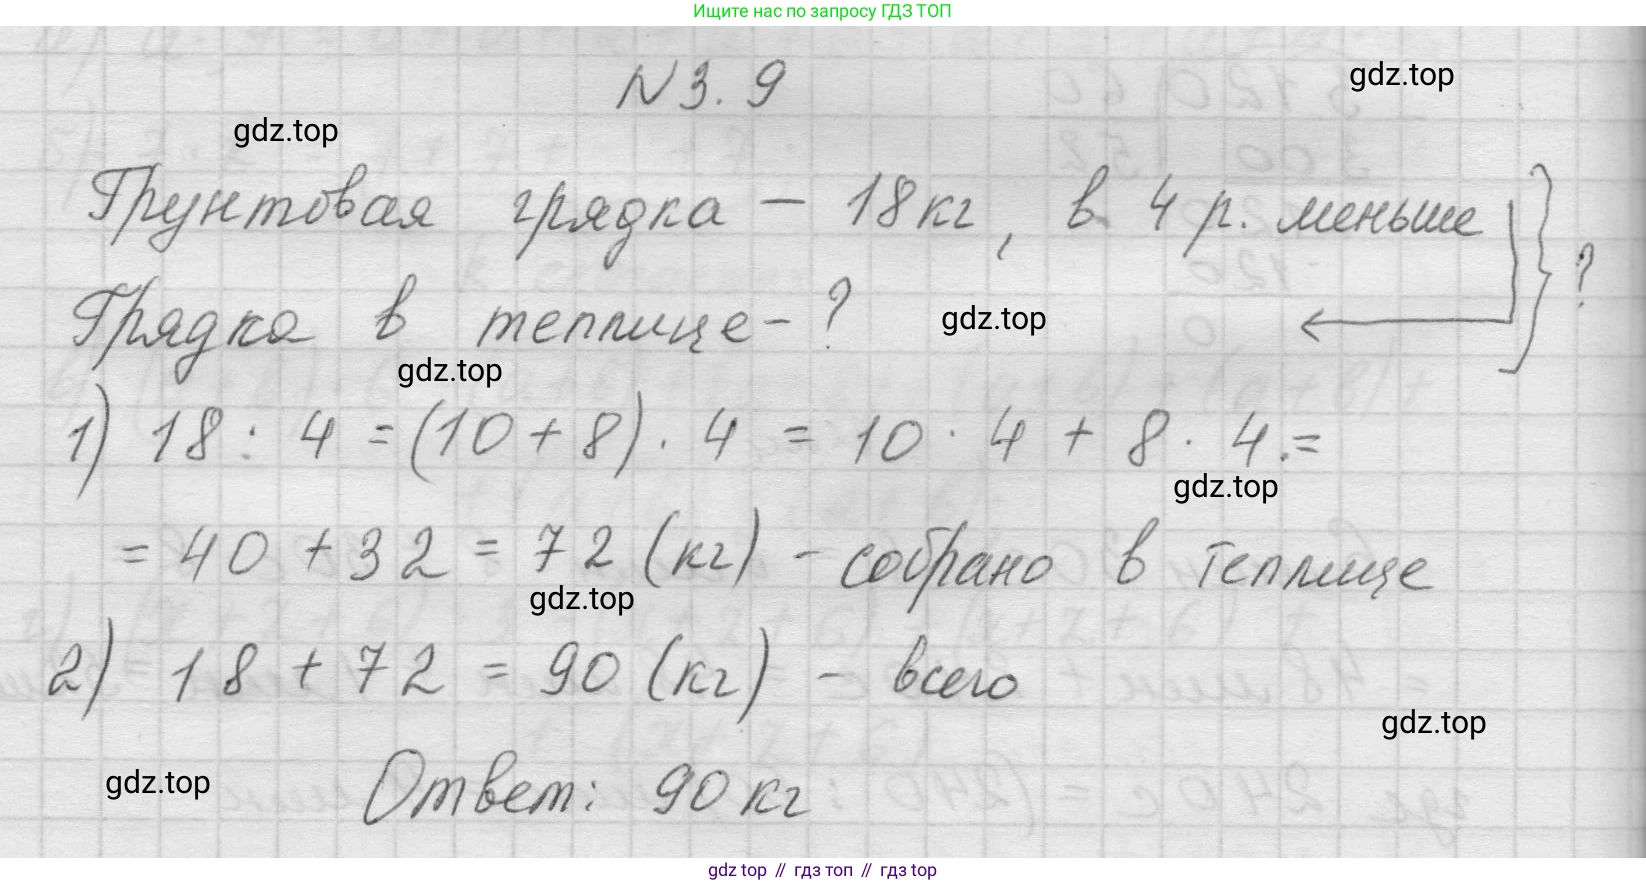 Ищите нас по запросу ГДЗ ТОП
N 3. 9
gdz.top
gdz.top
Грунтовая грядка — 18 кг, в 4 р. меньше
?
Грядка в теплице - ?
gdz.top
gdz.top
1) 18 : 4 = (10 + 8) · 4 = 10 · 4 + 8 · 4 . =
gdz.top
= 40 + 32 = 72 (кг) - собрано в теплице
gdz.top
2) 18 + 72 = 90 (кг) - всего
gdz.top
gdz.top
Ответ: 90 кг
gdz top // гдз топ // гдз top